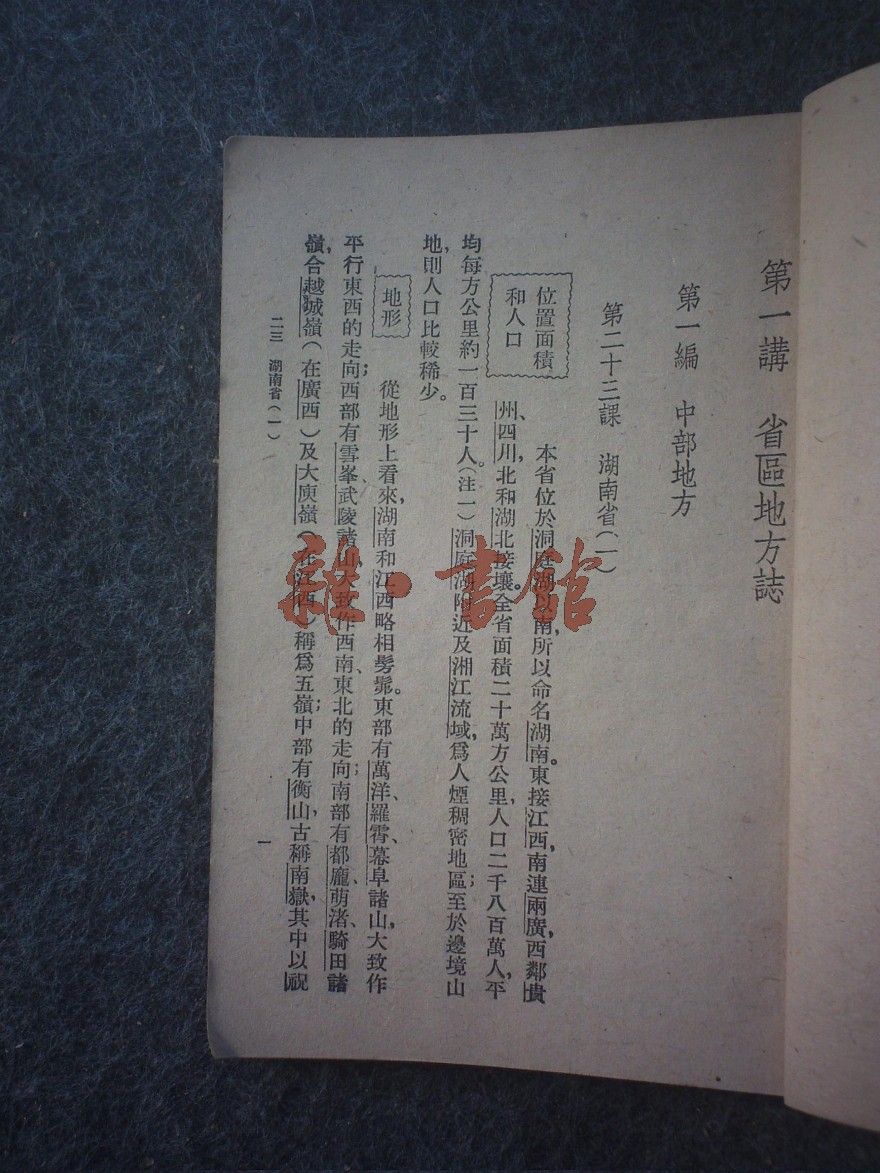 第一講　省區地方誌
第一編　中部地方
第二十三課　湖南省(一)
位置面積
和人口
本省位於洞庭湖以南，所以命名湖南。東接江西，南連兩廣，西鄰貴
州、四川，北和湖北接壤。全省面積二十萬方公里，人口二千八百萬人，平
均每方公里約一百三十人。(注一)洞庭湖附近及湘江流域，爲人煙稠密地區；至於邊境山
地，則人口比較稀少。
地形
從地形上看來，湖南和江西略相髣髴。東部有萬洋、羅霄、幕阜諸山，大致作
平行東西的走向；西部有雪峯、武陵諸山，大致作西南、東北的走向；南部有都龐、萌渚、騎田諸
嶺，合越城嶺(在廣西)及大庾嶺(在江西)稱爲五嶺；中部有衡山，古稱南嶽，其中以祝
二三　湖南省(一)
一
雜·書館